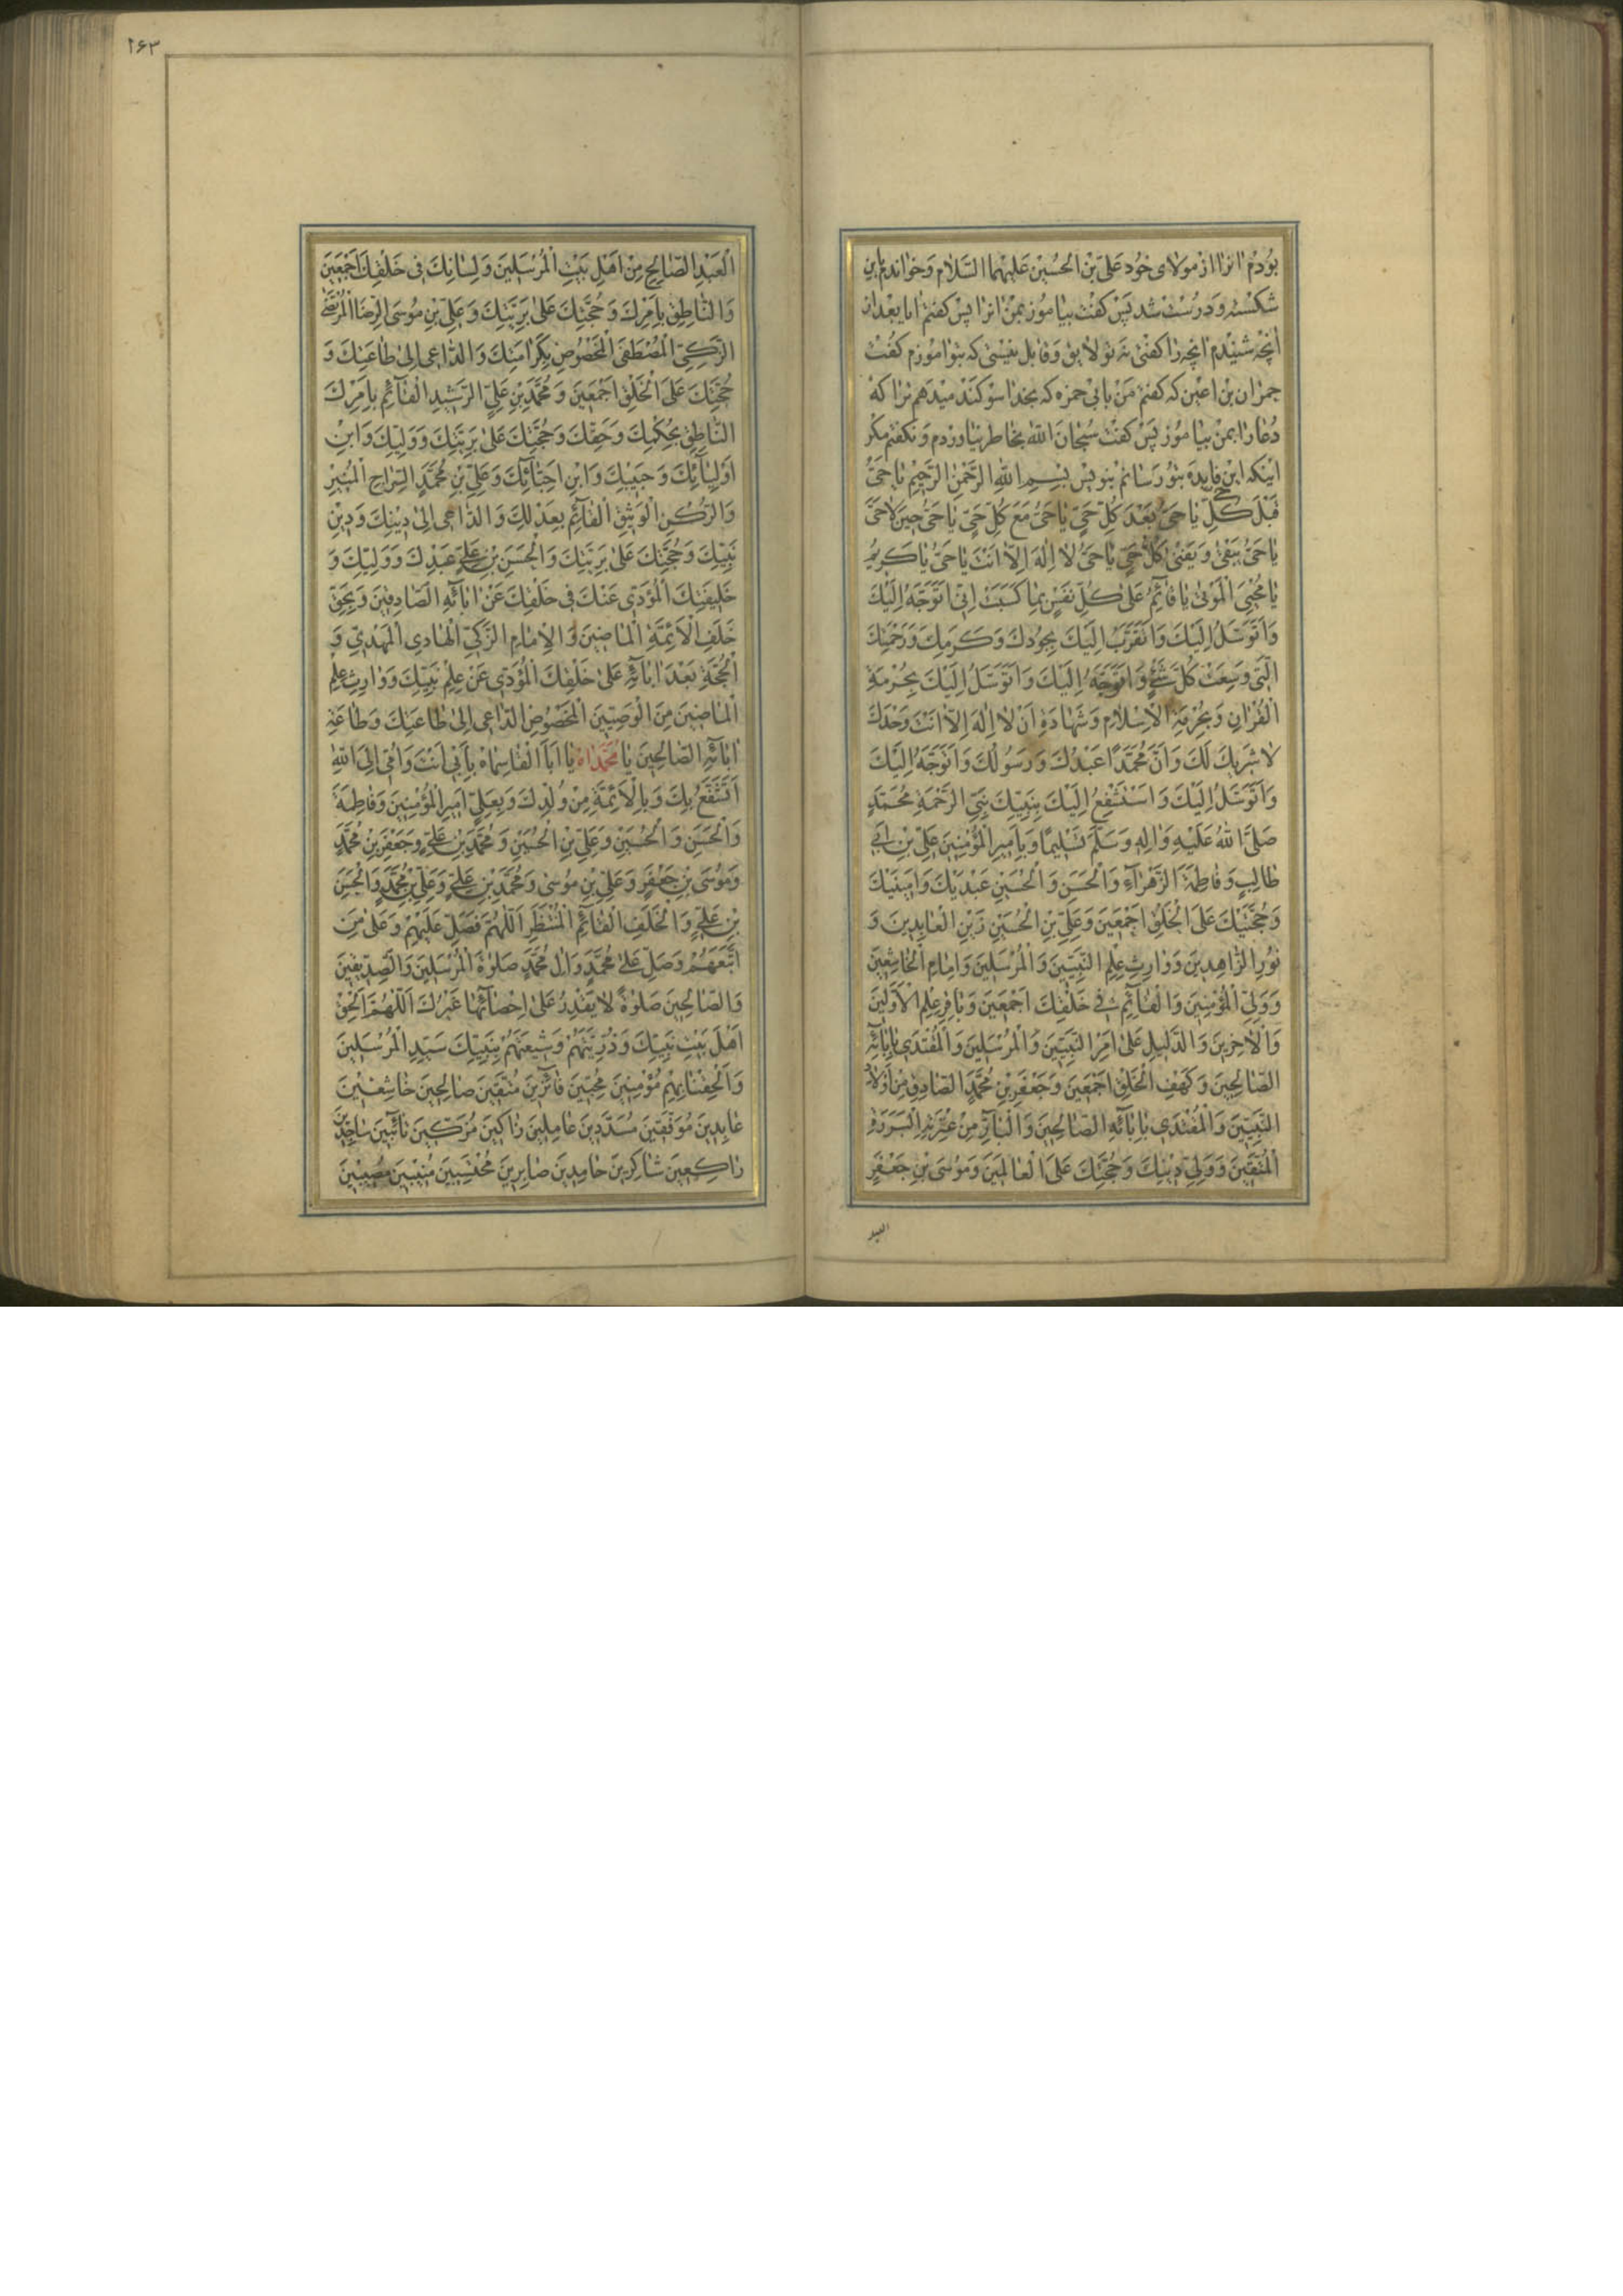 بودم انرا از مولای خود علی بن الحسین علیهما السلام وخواندم باین
شکسته و درست شد پس کفت بیاموز بمن انرا پس کفتم ایا بعد از
انچه شنیدم انچه را کفتی نه تو لایق وقابل نیستی که بتو اموزم کفت
حمران بن اعین که کفتم من بابی حمزه که بخدا سوکند میدهم ترا که
دعا را بمن بیاموز پس کفت سبحان الله بخاطر نیاوردم و نکفتم مکر
اینکه این فایده بتو رسانم بنویس بِسْمِ اللهِ الرَّحْمٰنِ الرَّحِيمِ يٰا حَيُّ
قَبْلَ كُلِّ حَيٍّ يٰا حَيُّ بَعْدَ كُلِّ حَيٍّ يٰا حَيُّ مَعَ كُلِّ حَيٍّ يٰا حَيُّ حِينَ لاٰ حَيَّ
يٰا حَيُّ يَبْقىٰ وَيَفْنىٰ كُلُّ حَيٍّ يٰا حَيُّ لاٰ اِلٰهَ اِلاّٰ اَنْتَ يٰا حَيُّ يٰا كَرِيمُ
يٰا مُحْيِيَ الْمَوْتىٰ يٰا قٰائِمُ عَلىٰ كُلِّ نَفْسٍ بِمٰا كَسَبَتْ اِنّي اَتَوَجَّهُ اِلَيْكَ
وَاَتَوَسَّلُ اِلَيْكَ وَاَتَقَرَّبُ اِلَيْكَ بِجُودِكَ وَكَرَمِكَ وَرَحْمَتِكَ
الَّتي وَسِعَتْ كُلَّ شَيْءٍ وَاَتَوَجَّهُ اِلَيْكَ وَاَتَوَسَّلُ اِلَيْكَ بِحُرْمَةِ
الْقُرْاٰنِ وَبِحُرْمَةِ الْاِسْلاٰمِ وَشَهٰادَةِ اَنْ لاٰ اِلٰهَ اِلاّٰ اَنْتَ وَحْدَكَ
لاٰ شَرِيكَ لَكَ وَاَنَّ مُحَمَّدًا عَبْدُكَ وَرَسُولُكَ وَاَتَوَجَّهُ اِلَيْكَ
وَاَتَوَسَّلُ اِلَيْكَ وَاَسْتَشْفِعُ اِلَيْكَ بِنَبِيِّكَ نَبِيِّ الرَّحْمَةِ مُحَمَّدٍ
صَلَّى اللهُ عَلَيْهِ وَاٰلِهِ وَسَلَّمَ تَسْلِيمًا وَبِاَمِيرِ الْمُؤْمِنِينَ عَلِيِّ بْنِ اَبي
طٰالِبٍ وَفٰاطِمَةَ الزَّهْرٰاءِ وَالْحَسَنِ وَالْحُسَيْنِ عَبْدَيْكَ وَاَمِينَيْكَ
وَحُجَّتَيْكَ عَلَى الْخَلْقِ اَجْمَعِينَ وَعَلِيِّ بْنِ الْحُسَيْنِ زَيْنِ الْعٰابِدِينَ وَ
نُورِ الزّٰاهِدِينَ وَوٰارِثِ عِلْمِ النَّبِيِّينَ وَالْمُرْسَلِينَ وَاِمٰامِ الْخٰاشِعِينَ
وَوَلِيِّ الْمُؤْمِنِينَ وَالْقٰائِمِ في خَلْقِكَ اَجْمَعِينَ وَبٰاقِرِ عِلْمِ الْاَوَّلِينَ
وَالْاٰخِرِينَ وَالدَّلِيلِ عَلىٰ اَمْرِ النَّبِيِّينَ وَالْمُرْسَلِينَ وَالْمُقْتَدي بِاٰبٰائِهِ
الصّٰالِحِينَ وَكَهْفِ الْخَلْقِ اَجْمَعِينَ وَجَعْفَرِ بْنِ مُحَمَّدٍ الصّٰادِقِ مِنْ اَوْلاٰدِ
النَّبِيِّينَ وَالْمُقْتَدي بِاٰبٰائِهِ الصّٰالِحِينَ وَالْبٰارِّ مِنْ عِتْرَتِهِ الْبَرَرَةِ
الْمُتَّقِينَ وَوَلِيِّ دِينِكَ وَحُجَّتِكَ عَلَى الْعٰالَمِينَ وَمُوسَى بْنِ جَعْفَرٍ
العبد
۲۶۳
الْعَبْدِ الصّٰالِحِ مِنْ اَهْلِ بَيْتِ الْمُرْسَلِينَ وَلِسٰانِكَ في خَلْقِكَ اَجْمَعِينَ
وَالنّٰاطِقِ بِاَمْرِكَ وَحُجَّتِكَ عَلىٰ بَرِيَّتِكَ وَعَلِيِّ بْنِ مُوسَى الرِّضَا الْمُرْتَضىٰ
الزَّكِيِّ الْمُصْطَفَى الْمَخْصُوصِ بِكَرٰامَتِكَ وَالدّٰاعي اِلىٰ طٰاعَتِكَ وَ
حُجَّتِكَ عَلَى الْخَلْقِ اَجْمَعِينَ وَمُحَمَّدِ بْنِ عَلِيٍّ الرَّشِيدِ الْقٰائِمِ بِاَمْرِكَ
النّٰاطِقِ بِحُكْمِكَ وَحَقِّكَ وَحُجَّتِكَ عَلىٰ بَرِيَّتِكَ وَوَلِيِّكَ وَابْنِ
اَوْلِيٰائِكَ وَحَبِيبِكَ وَابْنِ اَحِبّٰائِكَ وَعَلِيِّ بْنِ مُحَمَّدٍ السِّرٰاجِ الْمُنِيرِ
وَالرُّكْنِ الْوَثِيقِ الْقٰائِمِ بِعَدْلِكَ وَالدّٰاعي اِلىٰ دِينِكَ وَدِينِ
نَبِيِّكَ وَحُجَّتِكَ عَلىٰ بَرِيَّتِكَ وَالْحَسَنِ بْنِ عَلِيٍّ عَبْدِكَ وَوَلِيِّكَ وَ
خَلِيفَتِكَ الْمُؤَدّي عَنْكَ في خَلْقِكَ عَنْ اٰبٰائِهِ الصّٰادِقِينَ وَبِحَقِّ
خَلَفِ الْاَئِمَّةِ الْمٰاضِينَ وَالْاِمٰامِ الزَّكِيِّ الْهٰادِي الْمَهْدِيِّ وَ
الْحُجَّةِ بَعْدَ اٰبٰائِهِ عَلىٰ خَلْقِكَ الْمُؤَدّي عَنْ عِلْمِ نَبِيِّكَ وَوٰارِثِ عِلْمِ
الْمٰاضِينَ مِنَ الْوَصِيّينَ الْمَخْصُوصِ الدّٰاعي اِلىٰ طٰاعَتِكَ وَطٰاعَةِ
اٰبٰائِهِ الصّٰالِحِينَ يٰا مُحَمَّدٰاهُ يٰا اَبَا الْقٰاسِمٰاهُ بِاَبي اَنْتَ وَاُمّي اِلَى اللهِ
اَتَشَفَّعُ بِكَ وَبِالْاَئِمَّةِ مِنْ وُلْدِكَ وَبِعَلِيٍّ اَمِيرِ الْمُؤْمِنِينَ وَفٰاطِمَةَ
وَالْحَسَنِ وَالْحُسَيْنِ وَعَلِيِّ بْنِ الْحُسَيْنِ وَمُحَمَّدِ بْنِ عَلِيٍّ وَجَعْفَرِ بْنِ مُحَمَّدٍ
وَمُوسَى بْنِ جَعْفَرٍ وَعَلِيِّ بْنِ مُوسىٰ وَمُحَمَّدِ بْنِ عَلِيٍّ وَعَلِيِّ بْنِ مُحَمَّدٍ وَالْحَسَنِ
بْنِ عَلِيٍّ وَالْخَلَفِ الْقٰائِمِ الْمُنْتَظَرِ اَللّٰهُمَّ فَصَلِّ عَلَيْهِمْ وَعَلىٰ مَنِ
اتَّبَعَهُمْ وَصَلِّ عَلىٰ مُحَمَّدٍ وَاٰلِ مُحَمَّدٍ صَلٰوةَ الْمُرْسَلِينَ وَالصِّدّيقِينَ
وَالصّٰالِحِينَ صَلٰوةً لاٰ يَقْدِرُ عَلىٰ اِحْصٰائِهٰا غَيْرُكَ اَللّٰهُمَّ اَلْحِقْ
اَهْلَ بَيْتِ نَبِيِّكَ وَذُرِّيَّتَهُمْ وَشِيعَتَهُمْ بِنَبِيِّكَ سَيِّدِ الْمُرْسَلِينَ
وَاَلْحِقْنٰا بِهِمْ مُؤْمِنِينَ مُخْبِتِينَ فٰائِزِينَ مُتَّقِينَ صٰالِحِينَ خٰاشِعِينَ
عٰابِدِينَ مُوَفَّقِينَ مُسَدَّدِينَ عٰامِلِينَ زٰاكِينَ مُزَكّينَ تٰائِبِينَ سٰاجِدِينَ
رٰاكِعِينَ شٰاكِرِينَ حٰامِدِينَ صٰابِرِينَ مُحْتَسِبِينَ مُنِيبِينَ مُصِيبِينَ